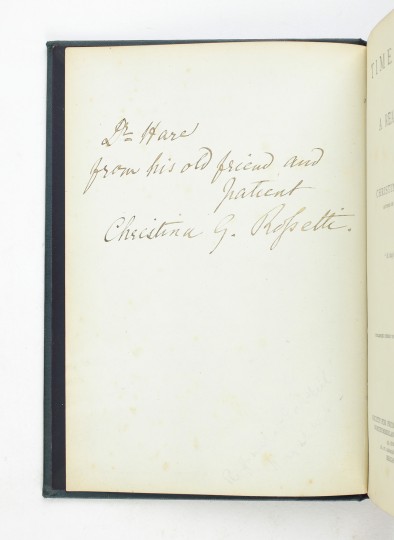 Dr. Hare
from his old friend and
patient
Christina G. Rossetti.
TIME
A REA
CHRISTIN